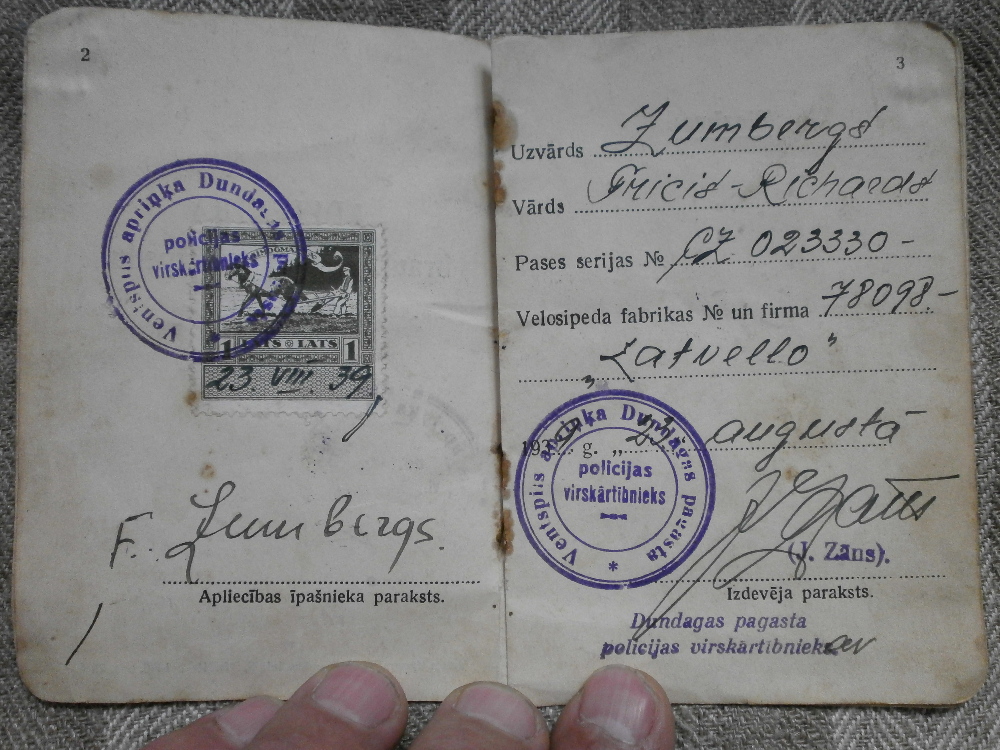 2
Ventspils apriņķa Dundagas pagasta
policijas
virskārtībnieks
1 LATS LATS 1
23 VIII 39
F. Zumbergs.
Apliecības īpašnieka paraksts.
3
Uzvārds Zumbergs
Vārds Fricis-Richards
Pases serijas № CZ 023330 -
Velosipeda fabrikas № un firma 78098.-
„Latvello”
1939. g. „23. augustā
Ventspils apriņķa Dundagas pagasta
policijas
virskārtībnieks
(J. Zāns).
Izdevēja paraksts.
Dundagas pagasta
policijas virskārtībnieks